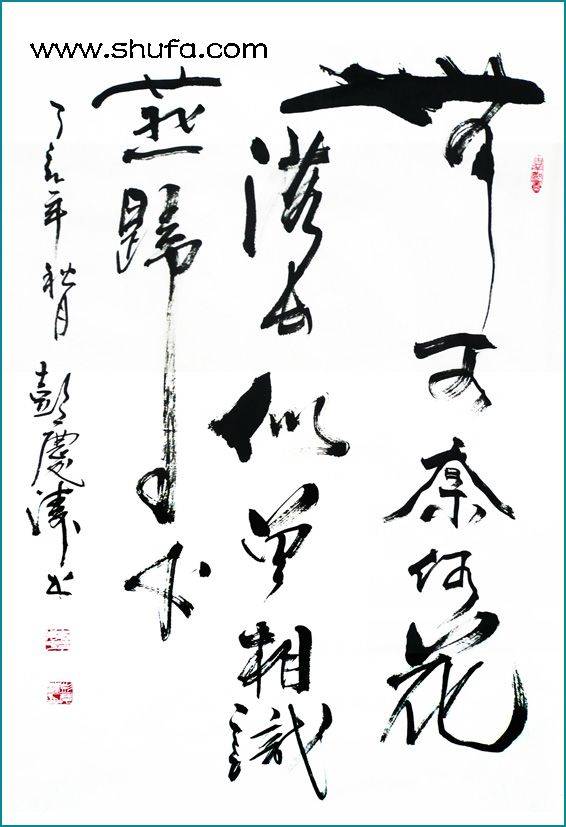 www.shufa.com
無可奈何花
落去似曾相識
燕歸來
丁亥年秋月彭慶濤书